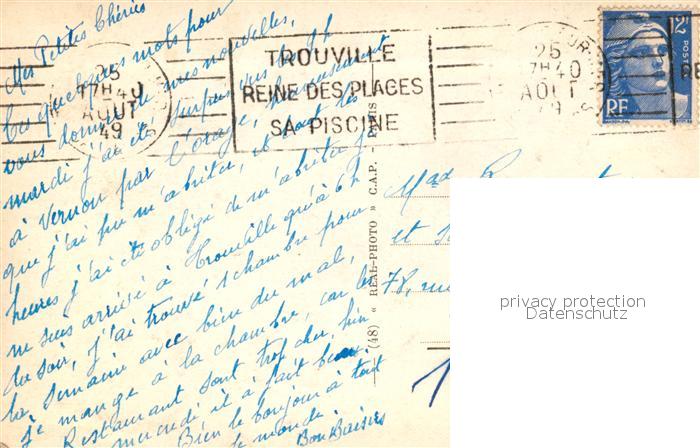 Mes Petites Chéries
Ces quelques mots pour
vous donner de mes nouvelles,
mardi j'ai été surpris vers 11h
à Vernon par l'orage, heureusement
que j'ai pu m'abriter, et dans les
heures j'ai été obligé de m'abriter je
ne suis arrivé à Trouville qu'à 6h
du soir, j'ai trouvé 1 chambre pour
la semaine avec bien du mal,
je mange à la chambre, car les
Restaurant sont trop cher, hier
mercredi il a fait beau
Bien le bonjour à tout
le monde
Bon Baisers
25
17H40
AOUT
49
TROUVILLE
REINE DES PLAGES
SA PISCINE
25
17H40
AOUT
RE
12F
POSTES
RF
(48) « REAL-PHOTO » C.A.P. - PARIS
Mad
et
78, rue
privacy protection
Datenschutz